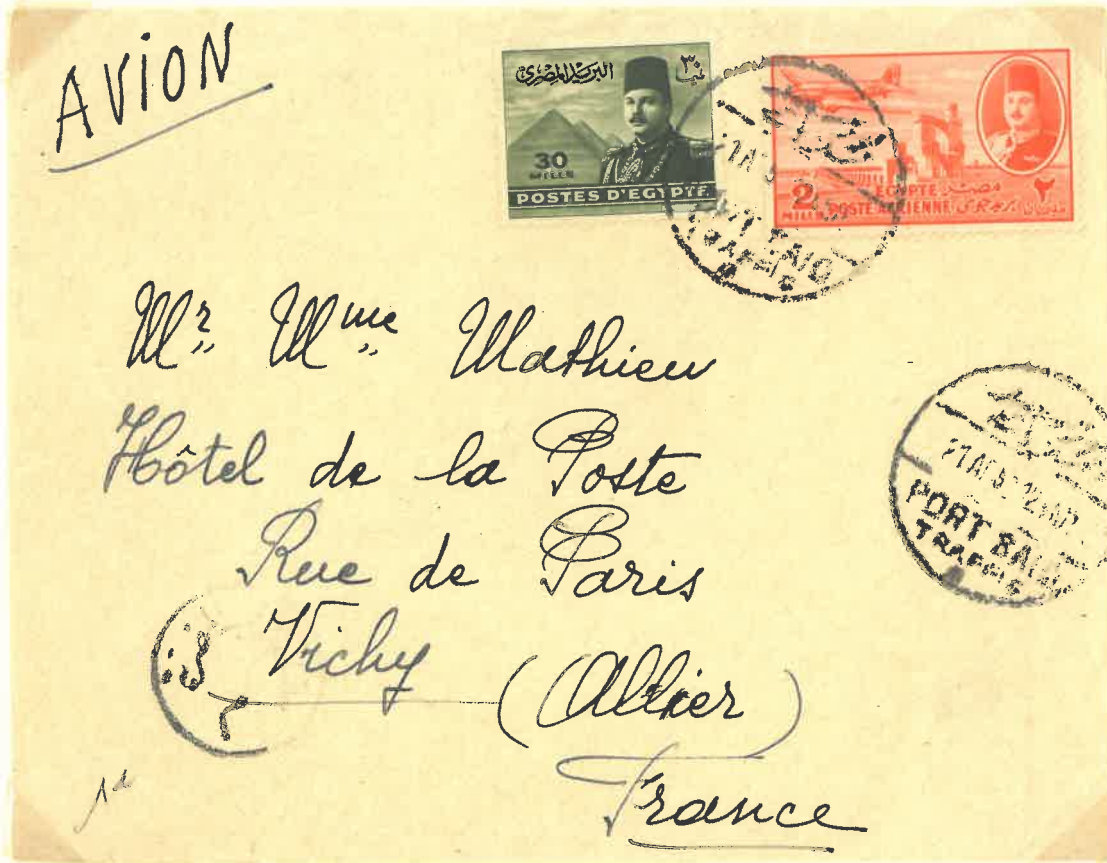 AVION
البريد المصرى
٣٠
30
MILLS
POSTES D'EGYPTE
2
MILLS
EGYPTE مصر
POSTE AERIENNE بريد جوى
٢
PORT SAID
TRAFFIC
Mr Mme Mathieu
Hôtel de la Poste
Rue de Paris
Vichy
(Allier)
France
PORT SAID
TRAFFIC